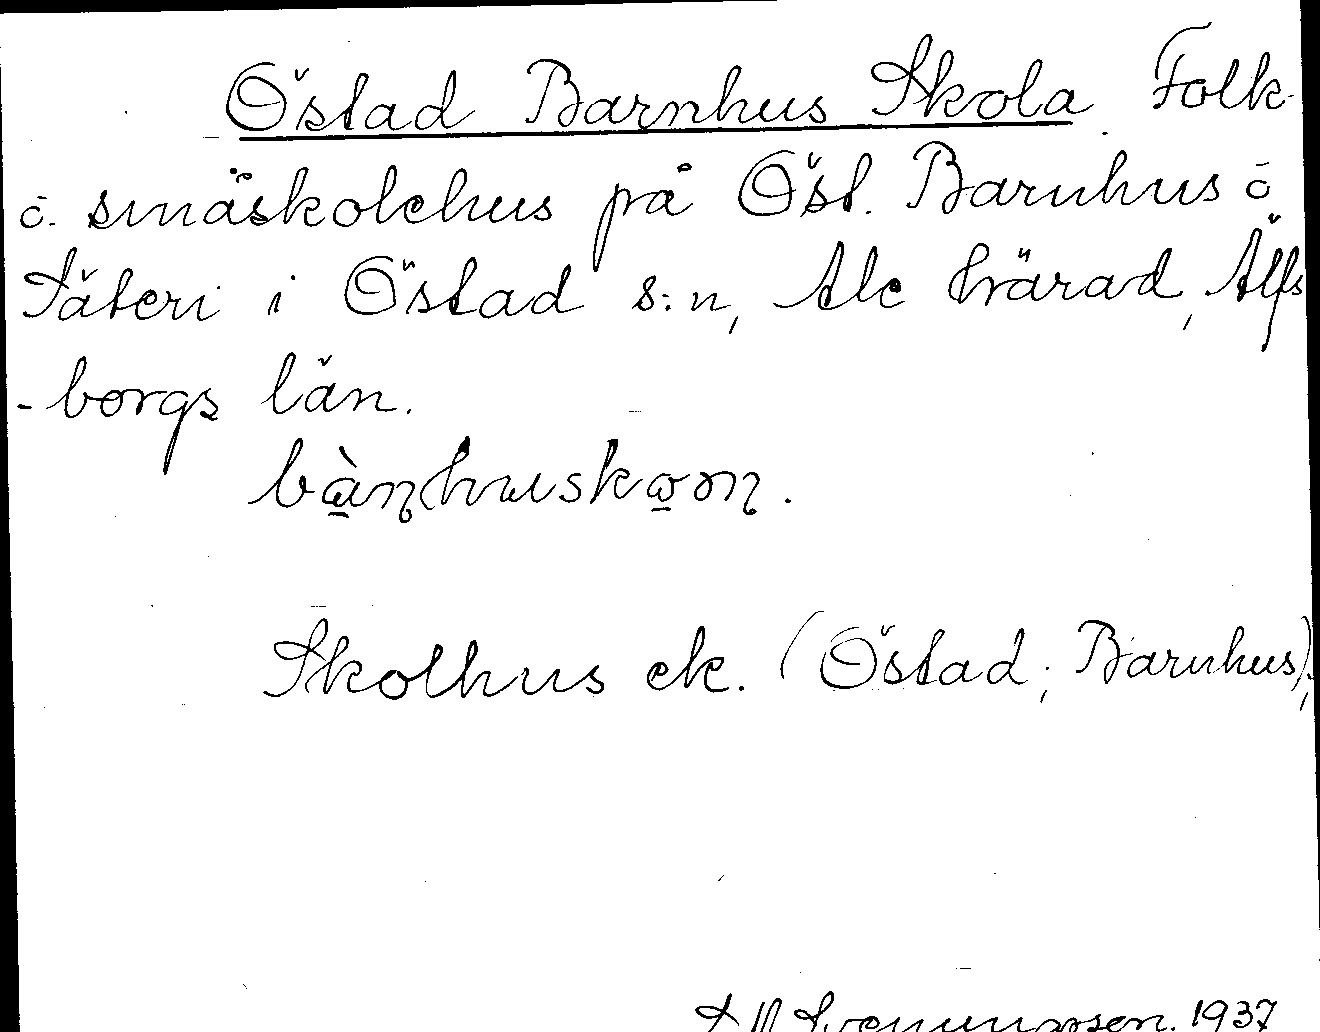 Östad Barnhus Skola. Folk-
o. småskolehus på Öst. Barnhus o
Säteri i Östad s:n, Ale härad, Älfs
-borgs län.
bànhuskon.
Skolhus ek. (Östad, Barnhus),
1937